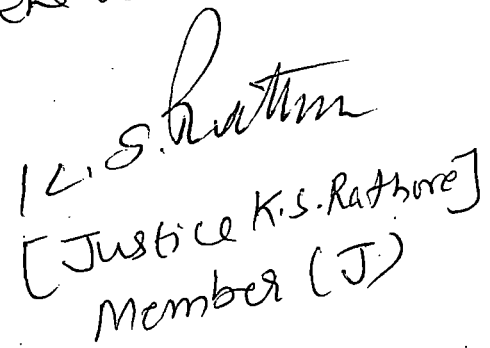 K.S.Rathore
[Justice K.S.Rathore]
Member (J)